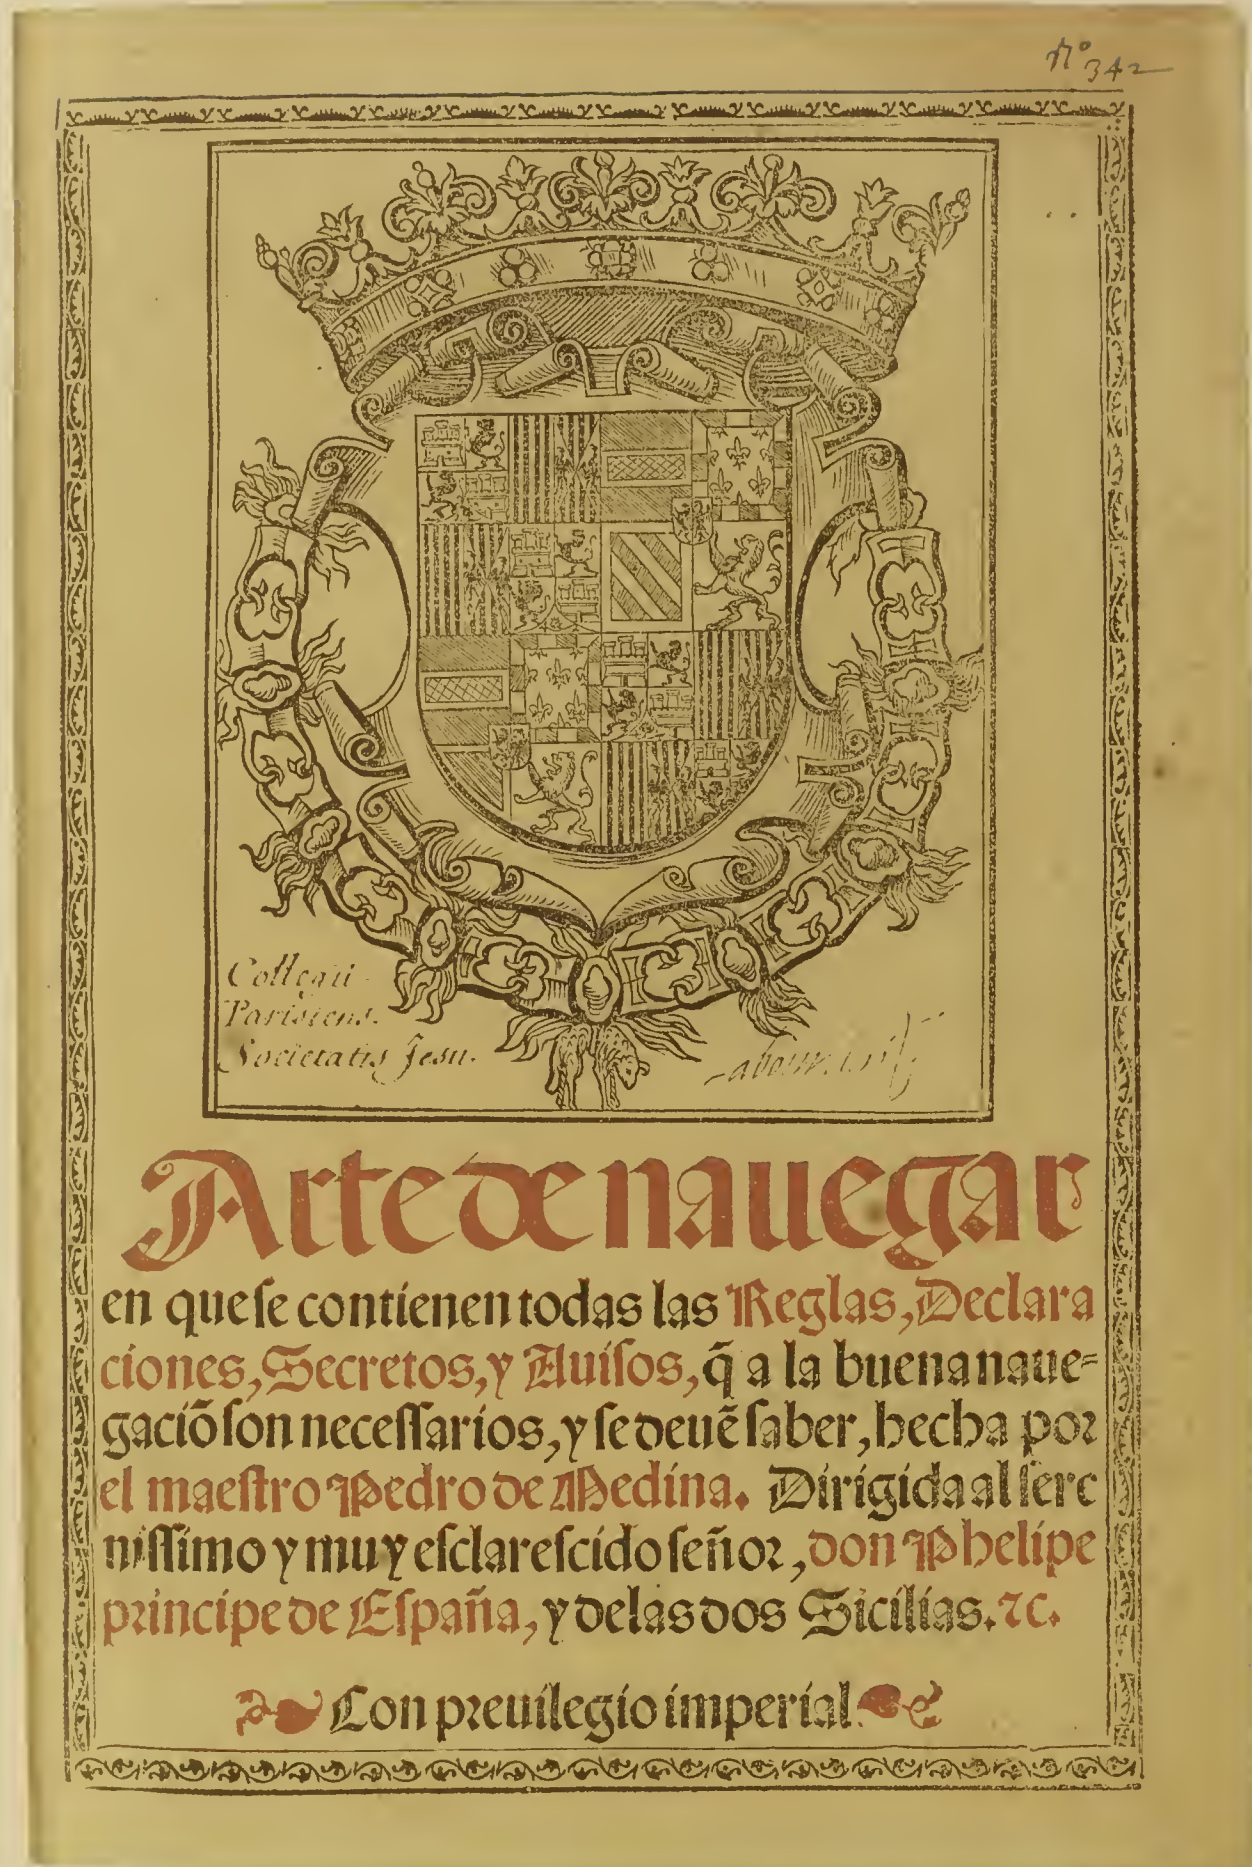 Nº 342
Collegii
Parisiens.
Societatis Jesu.
Arte de nauegar
en que ſe contienen todas las Reglas, Declara
ciones, Secretos, y Auiſos, q̃ a la buena naue-
gaciõ ſon neceſſarios, y ſe deuẽ ſaber, hecha por
el maeſtro Pedro de Medina. Dirigida al ſere
niſſimo y muy eſclareſcido ſeñor, don Phelipe
principe de Eſpaña, y delas dos Sicilias. ⁊c.
Con preuilegio imperial.